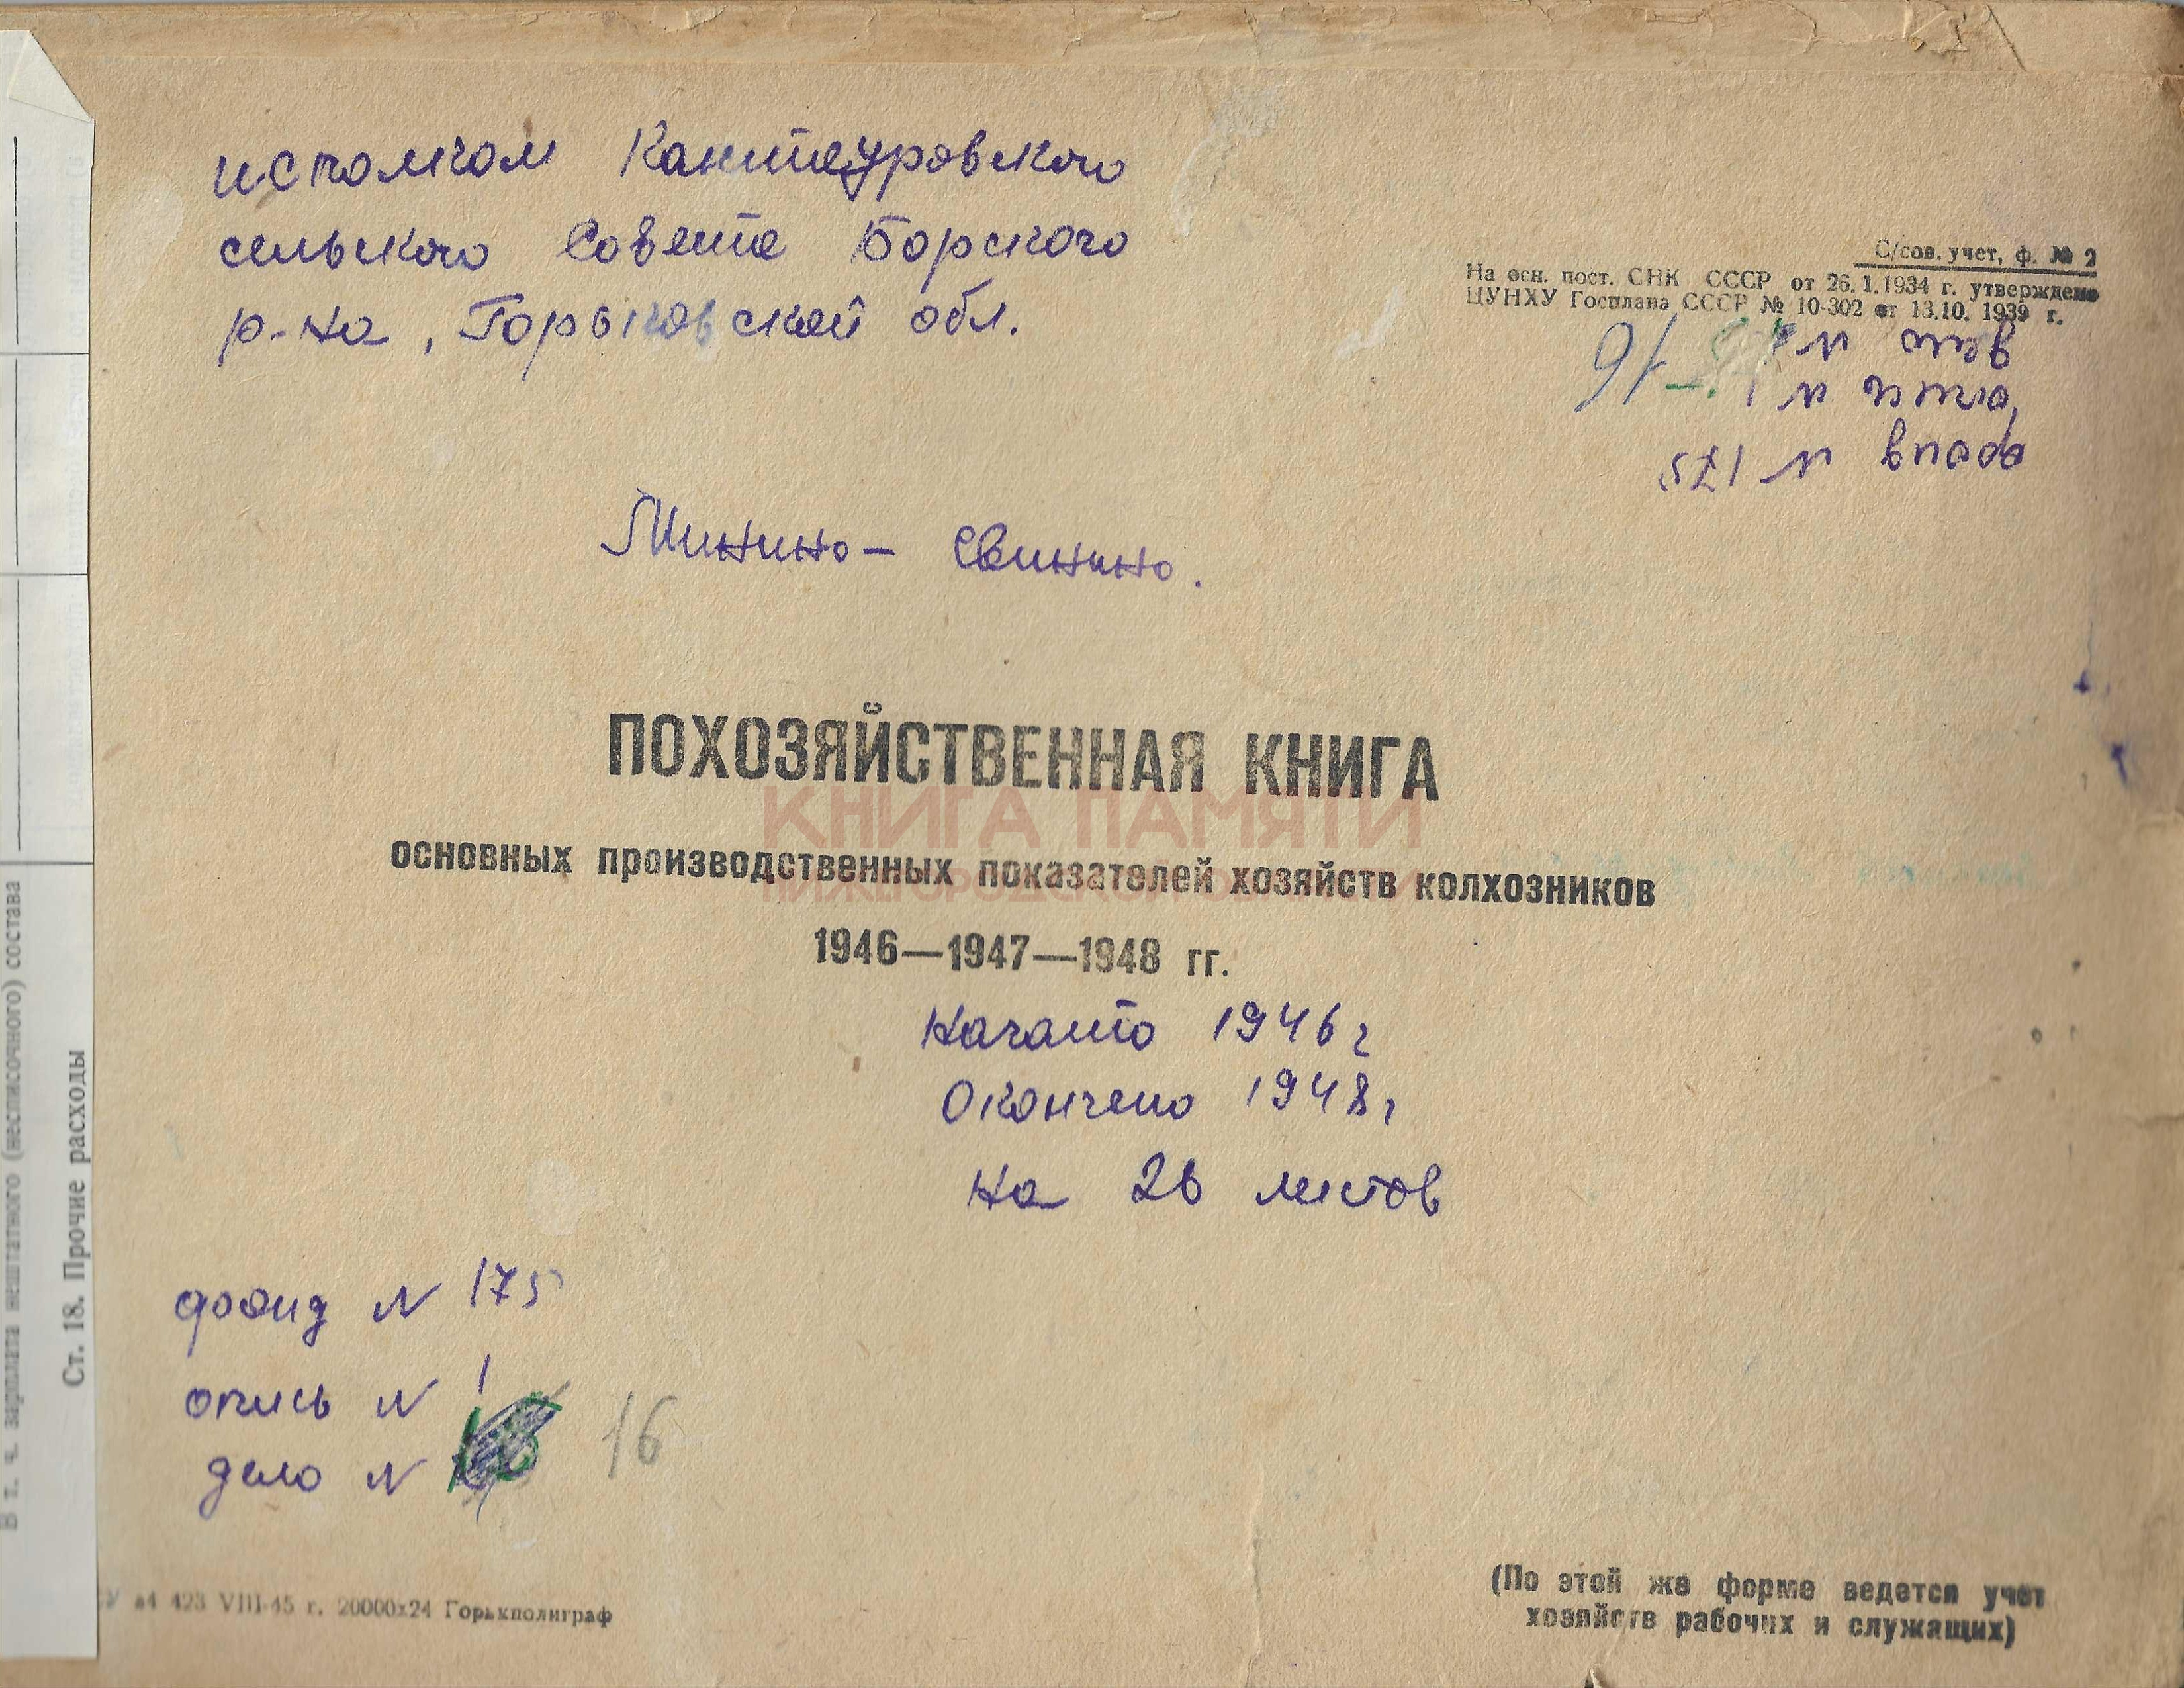 исполком Кантауровского
сельского Совета Борского
р-на, Горьковской обл.
С/сов. учет, ф. № 2
На осн. пост. СНК СССР от 26.1.1934 г. утверждено
ЦУНХУ Госплана СССР № 10-302 от 13.10. 1939 г.
дело N 16
опись N 1
фонд N 175
Минино - Свинино.
ПОХОЗЯЙСТВЕННАЯ КНИГА
КНИГА ПАМЯТИ
основных производственных показателей хозяйств колхозников
1946—1947—1948 гг.
Начато 1946 г
Окончено 1948 г
на 26 листов
фонд N 175
опись N 1
дело N 16
а4 423 VIII-45 г. 20000х24 Горькполиграф
(По этой же форме ведется учет
хозяйств рабочих и служащих)
В т. ч. зарплата нештатного (несписочного) состава
Ст. 18. Прочие расходы